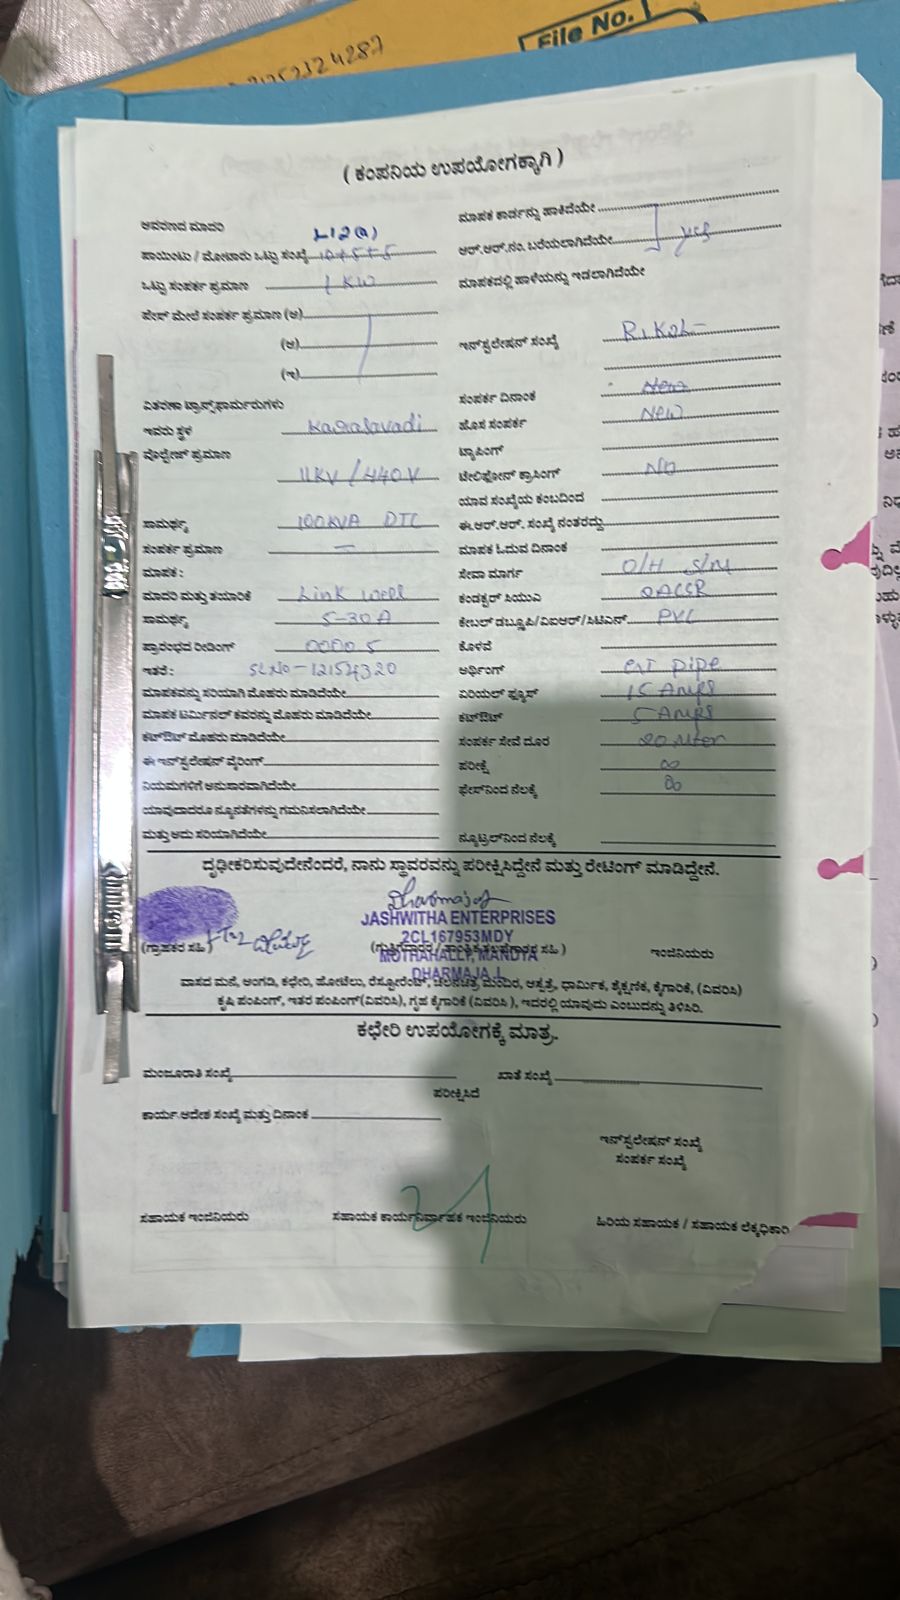 File No.
( ಕಂಪನಿಯ ಉಪಯೋಗಕ್ಕಾಗಿ )
ಆವರಣದ ಮಾದರಿ
LT2(a)
ಪಾಯಿಂಟು / ಮೋಟಾರು ಒಟ್ಟು ಸಂಖ್ಯೆ
ಒಟ್ಟು ಸಂಪರ್ಕ ಪ್ರಮಾಣ 1 KW
ಫೇಸ್ ಮೇಲೆ ಸಂಪರ್ಕ ಪ್ರಮಾಣ (ಅ)
(ಆ)
(ಇ)
ವಿತರಣಾ ಟ್ರಾನ್ಸ್‌ಫಾರ್ಮರುಗಳು
ಇವರು ಸ್ಥಳ Karasavadi
ವೊಲ್ಟೇಜ್ ಪ್ರಮಾಣ
11KV/440V
ಸಾಮರ್ಥ್ಯ 100KVA DTC
ಸಂಪರ್ಕ ಪ್ರಮಾಣ —
ಮಾಪಕ :
ಮಾದರಿ ಮತ್ತು ತಯಾರಿಕೆ Link well
ಸಾಮರ್ಥ್ಯ 5-30A
ಪ್ರಾರಂಭದ ರೀಡಿಂಗ್ 0000 5
ಇತರೆ : SLNO-12154320
ಮಾಪಕವನ್ನು ಸರಿಯಾಗಿ ಮೊಹರು ಮಾಡಿದೆಯೇ
ಮಾಪಕ ಟರ್ಮಿನಲ್ ಕವರನ್ನು ಮೊಹರು ಮಾಡಿದೆಯೇ
ಕಟ್‌ಔಟ್ ಮೊಹರು ಮಾಡಿದೆಯೇ
ಈ ಇನ್‌ಸ್ಟಲೇಷನ್ ವೈರಿಂಗ್
ನಿಯಮಗಳಿಗೆ ಅನುಸಾರವಾಗಿದೆಯೇ
ಯಾವುದಾದರೂ ನ್ಯೂನತೆಗಳನ್ನು ಗಮನಿಸಲಾಗಿದೆಯೇ
ಮತ್ತು ಅದು ಸರಿಯಾಗಿದೆಯೇ
ಮಾಪಕ ಕಾರ್ಡನ್ನು ಹಾಕಿದೆಯೇ
ಆರ್.ಆರ್.ನಂ. ಬರೆಯಲಾಗಿದೆಯೇ yes
ಮಾಪಕದಲ್ಲಿ ಹಾಳೆಯನ್ನು ಇಡಲಾಗಿದೆಯೇ
ಇನ್‌ಸ್ಟಲೇಷನ್ ಸಂಖ್ಯೆ
ಸಂಪರ್ಕ ದಿನಾಂಕ New
ಹೊಸ ಸಂಪರ್ಕ New
ಟ್ಯಾಪಿಂಗ್
ಟೇಲಿಫೋನ್ ಕ್ರಾಸಿಂಗ್ No
ಯಾವ ಸಂಖ್ಯೆಯ ಕಂಬದಿಂದ
ಈ.ಆರ್.ಆರ್. ಸಂಖ್ಯೆ ನಂತರದ್ದು
ಮಾಪಕ ಓದುವ ದಿನಾಂಕ
ಸೇವಾ ಮಾರ್ಗ O/H S/M
ಕಂಡಕ್ಟರ್ ಸಿಯುವಿ
ಕೇಬಲ್ ಡಬ್ಲೂಪಿ/ವಿಐಆರ್/ಸಿಟಿಎಸ್ PVC
ಕೊಳವೆ
ಅರ್ಥಿಂಗ್ GI pipe
ಏರಿಯಲ್ ಫ್ಯೂಸ್ 15 Amps
ಕಟ್‌ಔಟ್ 5 Amps
ಸಂಪರ್ಕ ಸೇವೆ ದೂರ 20 Mter
ಪರೀಕ್ಷೆ ∞
ಫೇಸ್‌ನಿಂದ ನೆಲಕ್ಕೆ ∞
ನ್ಯೂಟ್ರಲ್‌ನಿಂದ ನೆಲಕ್ಕೆ
ದೃಢೀಕರಿಸುವುದೇನೆಂದರೆ, ನಾನು ಸ್ಥಾವರವನ್ನು ಪರೀಕ್ಷಿಸಿದ್ದೇನೆ ಮತ್ತು ರೇಟಿಂಗ್ ಮಾಡಿದ್ದೇನೆ.
JASHWITHA ENTERPRISES
2CL167953MDY
(ಗ್ರಾಹಕರ ಸಹಿ)
MUTHAHALLY, MANDYA
ಇಂಜಿನಿಯರು
DHARMAJA .L
ವಾಸದ ಮನೆ, ಅಂಗಡಿ, ಕಛೇರಿ, ಹೋಟೆಲು, ರೆಸ್ಟೋರೆಂಟ್, ಚಲನಚಿತ್ರ ಮಂದಿರ, ಆಸ್ಪತ್ರೆ, ಧಾರ್ಮಿಕ, ಶೈಕ್ಷಣಿಕ, ಕೈಗಾರಿಕೆ, (ವಿವರಿಸಿ)
ಕೃಷಿ ಪಂಪಿಂಗ್, ಇತರ ಪಂಪಿಂಗ್(ವಿವರಿಸಿ), ಗೃಹ ಕೈಗಾರಿಕೆ (ವಿವರಿಸಿ), ಇದರಲ್ಲಿ ಯಾವುದು ಎಂಬುದನ್ನು ತಿಳಿಸಿರಿ.
ಕಛೇರಿ ಉಪಯೋಗಕ್ಕೆ ಮಾತ್ರ.
ಮಂಜೂರಾತಿ ಸಂಖ್ಯೆ ಖಾತೆ ಸಂಖ್ಯೆ
ಪರೀಕ್ಷಿಸಿದೆ
ಕಾರ್ಯ ಆದೇಶ ಸಂಖ್ಯೆ ಮತ್ತು ದಿನಾಂಕ
ಇನ್‌ಸ್ಟಲೇಷನ್ ಸಂಖ್ಯೆ
ಸಂಪರ್ಕ ಸಂಖ್ಯೆ
ಸಹಾಯಕ ಇಂಜಿನಿಯರು ಸಹಾಯಕ ಕಾರ್ಯನಿರ್ವಾಹಕ ಇಂಜಿನಿಯರು ಹಿರಿಯ ಸಹಾಯಕ / ಸಹಾಯಕ ಲೆಕ್ಕಾಧಿಕಾರಿ